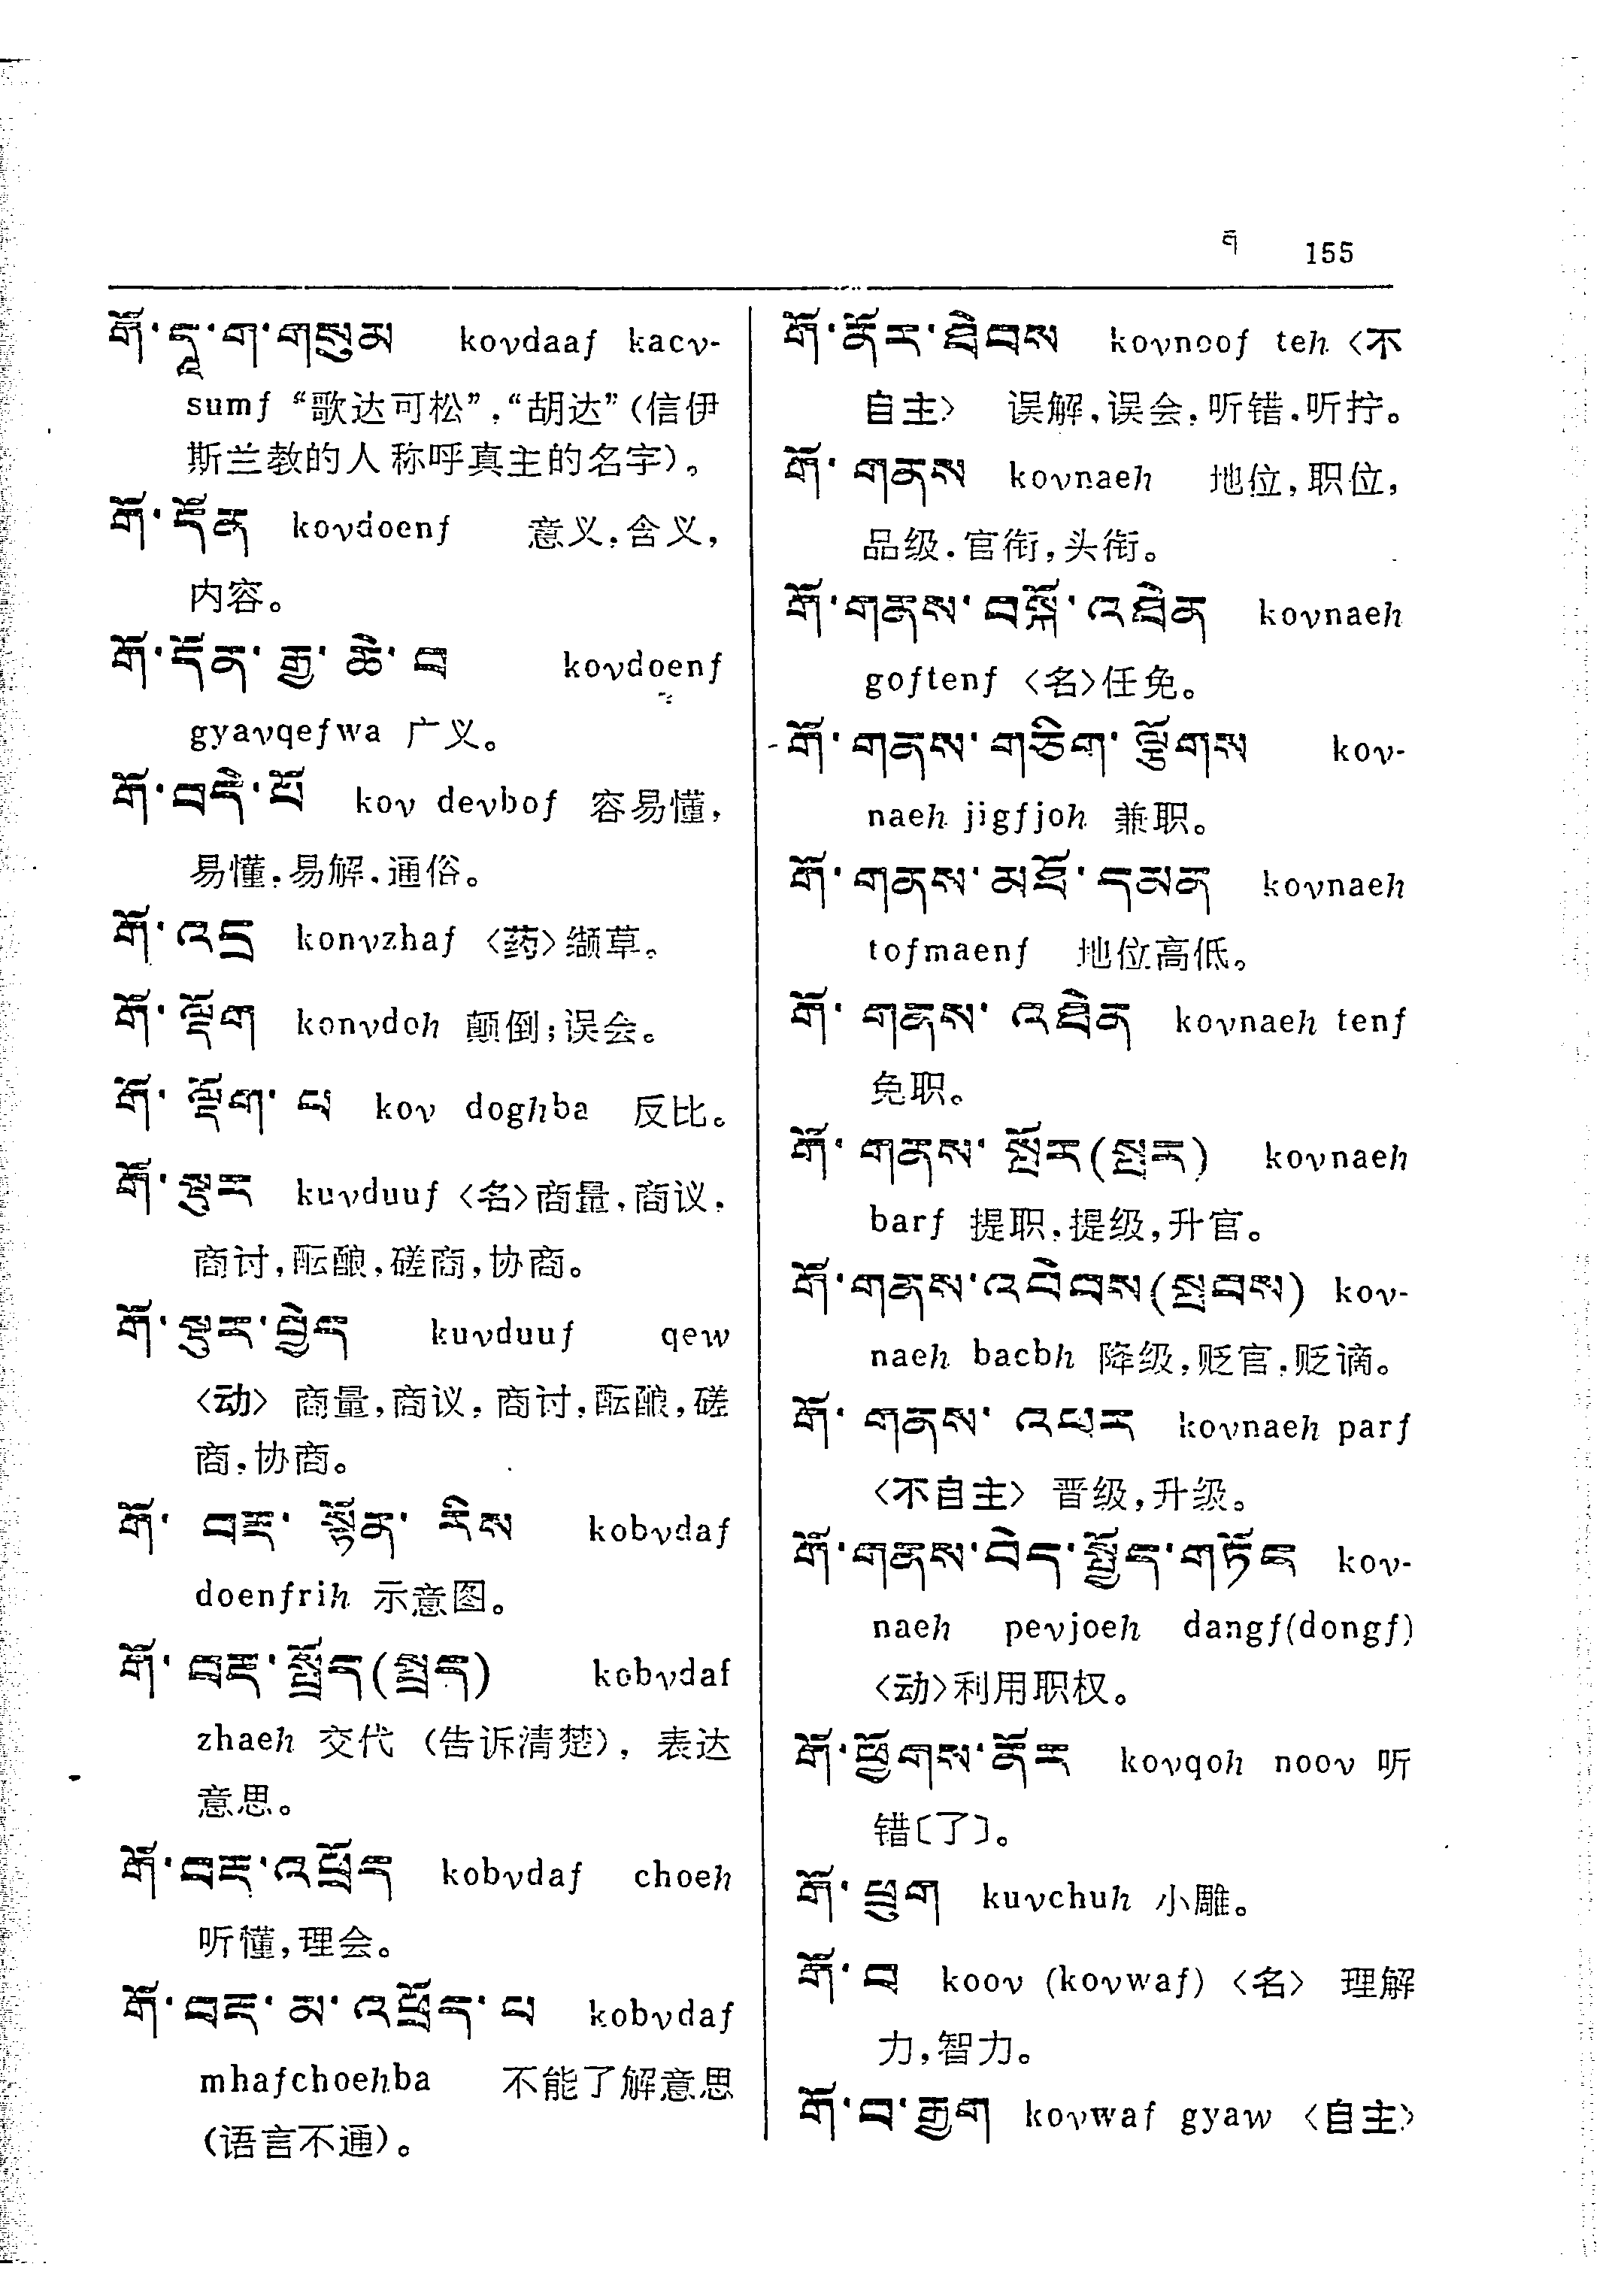 ག 155
གོ་དཱ་ག་གསུམ kovdaaf kacv-
sumf “歌达可松”,“胡达”(信伊
斯兰教的人称呼真主的名字)。
གོ་དོན kovdoenf 意义,含义,
内容。
གོ་དོན་རྒྱ་ཆེ་བ kovdoenf
gyavqefwa 广义。
གོ་བདེ་པོ kov devbof 容易懂,
易懂,易解,通俗。
གོ་འདྲ konvzhaf 〈药〉缬草。
གོ་ལྡོག konvdoh 颠倒;误会。
གོ་ལྡོག་པ kov doghba 反比。
གོ་སྡུར kuvduuf 〈名〉商量,商议,
商讨,酝酿,磋商,协商。
གོ་སྡུར་བྱེད kuvduuf qew
〈动〉 商量,商议,商讨,酝酿,磋
商,协商。
གོ་བརྡ་སྟོན་རིས kobvdaf
doenfrih 示意图。
གོ་བརྡ་སྤྲོད(སྤྲད) kobvdaf
zhaeh 交代 (告诉清楚), 表达
意思。
གོ་བརྡ་འཕྲོད kobvdaf choeh
听懂,理会。
གོ་བརྡ་མ་འཕྲོད་པ kobvdaf
mhafchoehba 不能了解意思
(语言不通)。
གོ་ནོར་ཐེབས kovnoof teh 〈不
自主〉 误解,误会,听错,听拧。
གོ་གནས kovnaeh 地位,职位,
品级,官衔,头衔。
གོ་གནས་བསྐོ་འཐེན kovnaeh
goftenf 〈名〉任免。
གོ་གནས་གཅིག་ལྕོགས kov-
naeh jigfjoh 兼职。
གོ་གནས་མཐོ་དམན kovnaeh
tofmaenf 地位高低。
གོ་གནས་འཐེན kovnaeh tenf
免职。
གོ་གནས་སྤོར(སྤར) kovnaeh
barf 提职,提级,升官。
གོ་གནས་འབེབས(སྤབས) kov-
naeh bacbh 降级,贬官,贬谪。
གོ་གནས་འཕར kovnaeh parf
〈不自主〉 晋级,升级。
གོ་གནས་བེད་སྤྱོད་གཏོང kov-
naeh pevjoeh dangf(dongf)
〈动〉利用职权。
གོ་ཕྱོགས་ནོར kovqoh noov 听
错〔了〕。
གོ་ཕྲུག kuvchuh 小雕。
གོ་བ koov (kovwaf) 〈名〉 理解
力,智力。
གོ་བ་རྒྱག kovwaf gyaw 〈自主〉